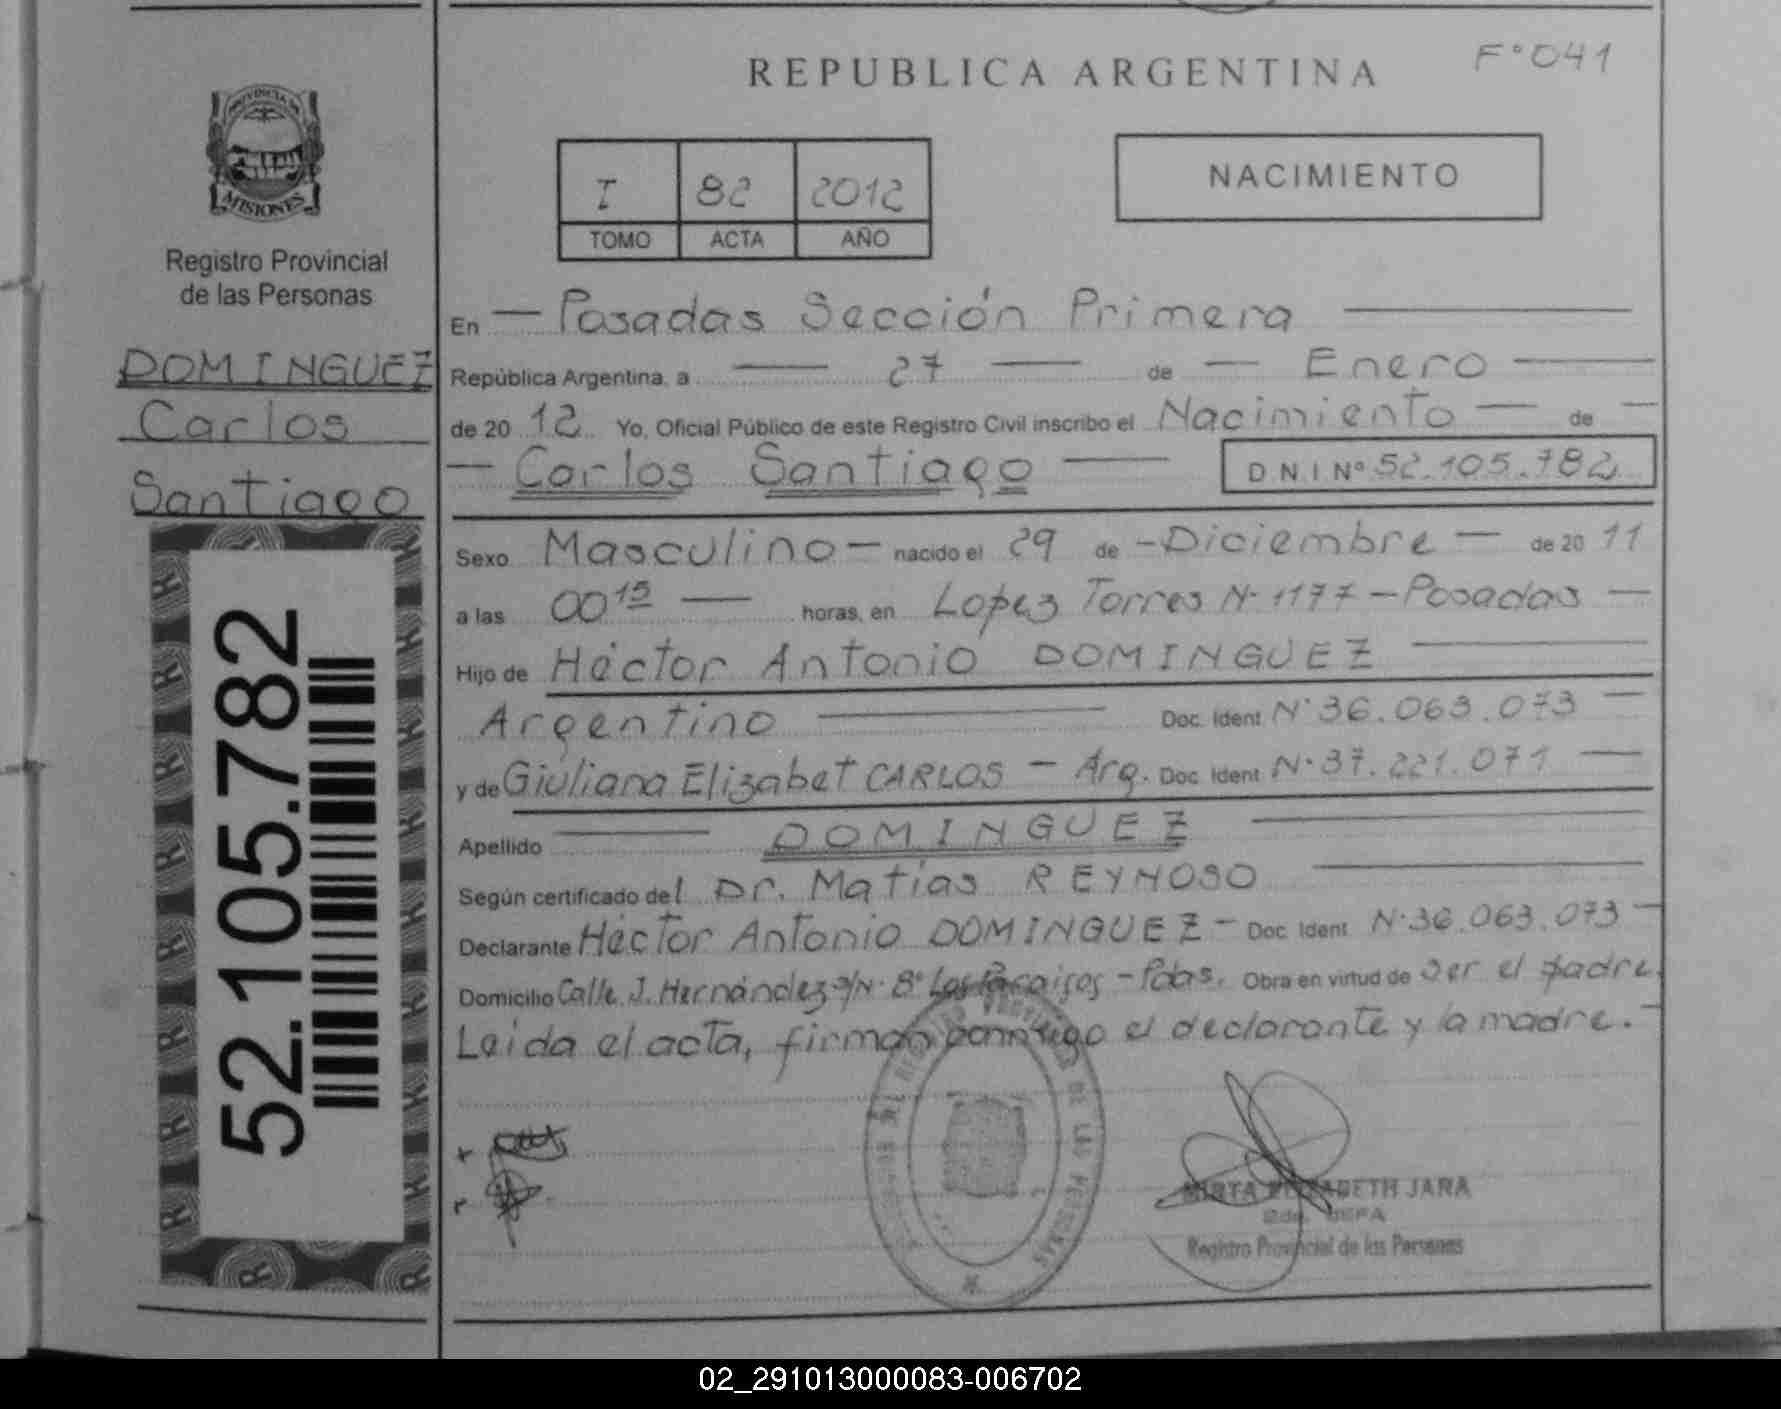 REPUBLICA ARGENTINA
F° 041
PROVINCIA DE
MISIONES
Registro Provincial
de las Personas
DOMINGUEZ
Carlos
Santiago
52.105.782
I 82 2012
TOMO ACTA AÑO
NACIMIENTO
En — Posadas Sección Primera —
República Argentina, a — 27 — de — Enero —
de 20 12 Yo, Oficial Público de este Registro Civil inscribo el Nacimiento — de —
— Carlos Santiago — D.N.I Nº 52.105.782
Sexo Masculino — nacido el 29 de - Diciembre — de 20 11
a las 00 15 — horas, en Lopez Torres N· 1177 - Posadas —
Hijo de Héctor Antonio DOMINGUEZ —
Argentino — Doc. Ident N° 36.063.073 —
y de Giuliana Elizabet CARLOS — Arg. Doc. Ident N· 37.221.071 —
Apellido — DOMINGUEZ —
Según certificado del Dr. Matías REYNOSO —
Declarante Héctor Antonio DOMINGUEZ - Doc. Ident N· 36.063.073 -
Domicilio Calle J. Hernández s/N· B° Los Paraisos - Pdas. Obra en virtud de ser el padre.
Leida el acta, firman conmigo el declarante y la madre. -
DE LAS PERSONAS
MIRTA ELIZABETH JARA
Registro Provincial de las Personas
02_291013000083-006702